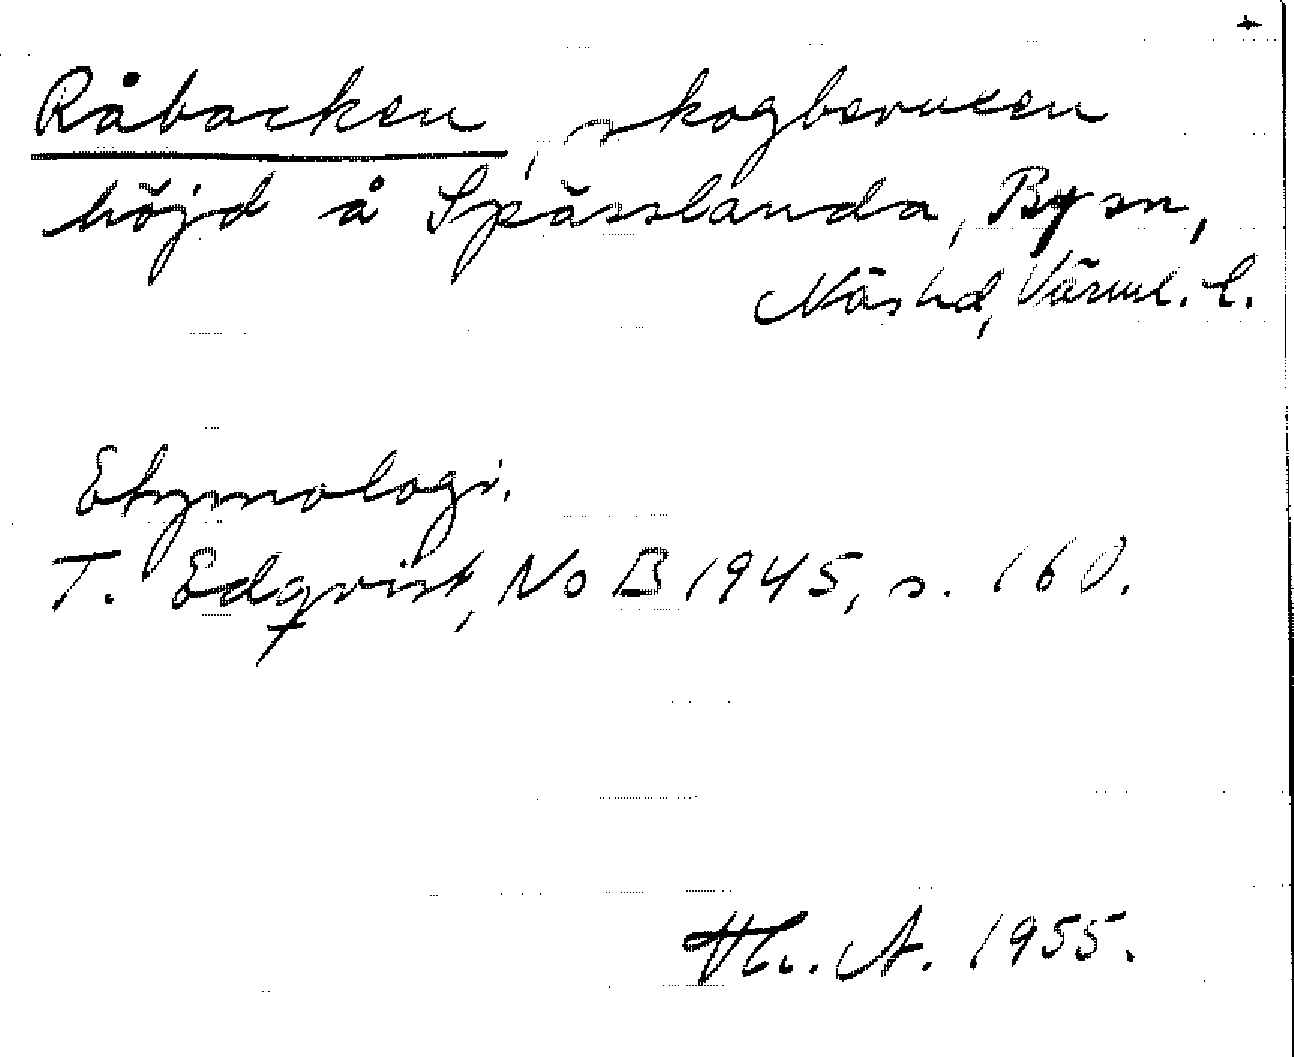 +
Råbacken, skogbevuxen
höjd å Spässlanda, By sn,
Näs hd, Värml. l.
Etymologi.
T. Edqvist, NoB 1945, s. 160.
Th. A. 1955.